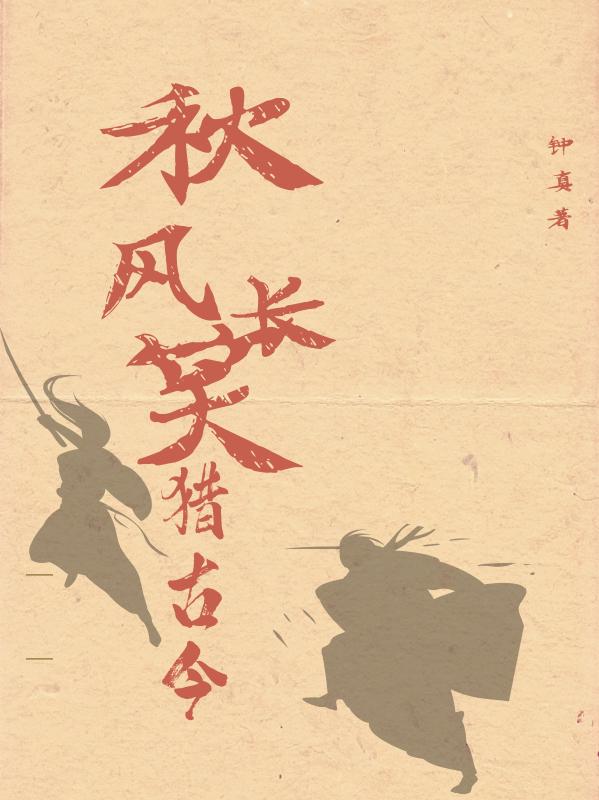 秋风长笑猎古今
钟真著